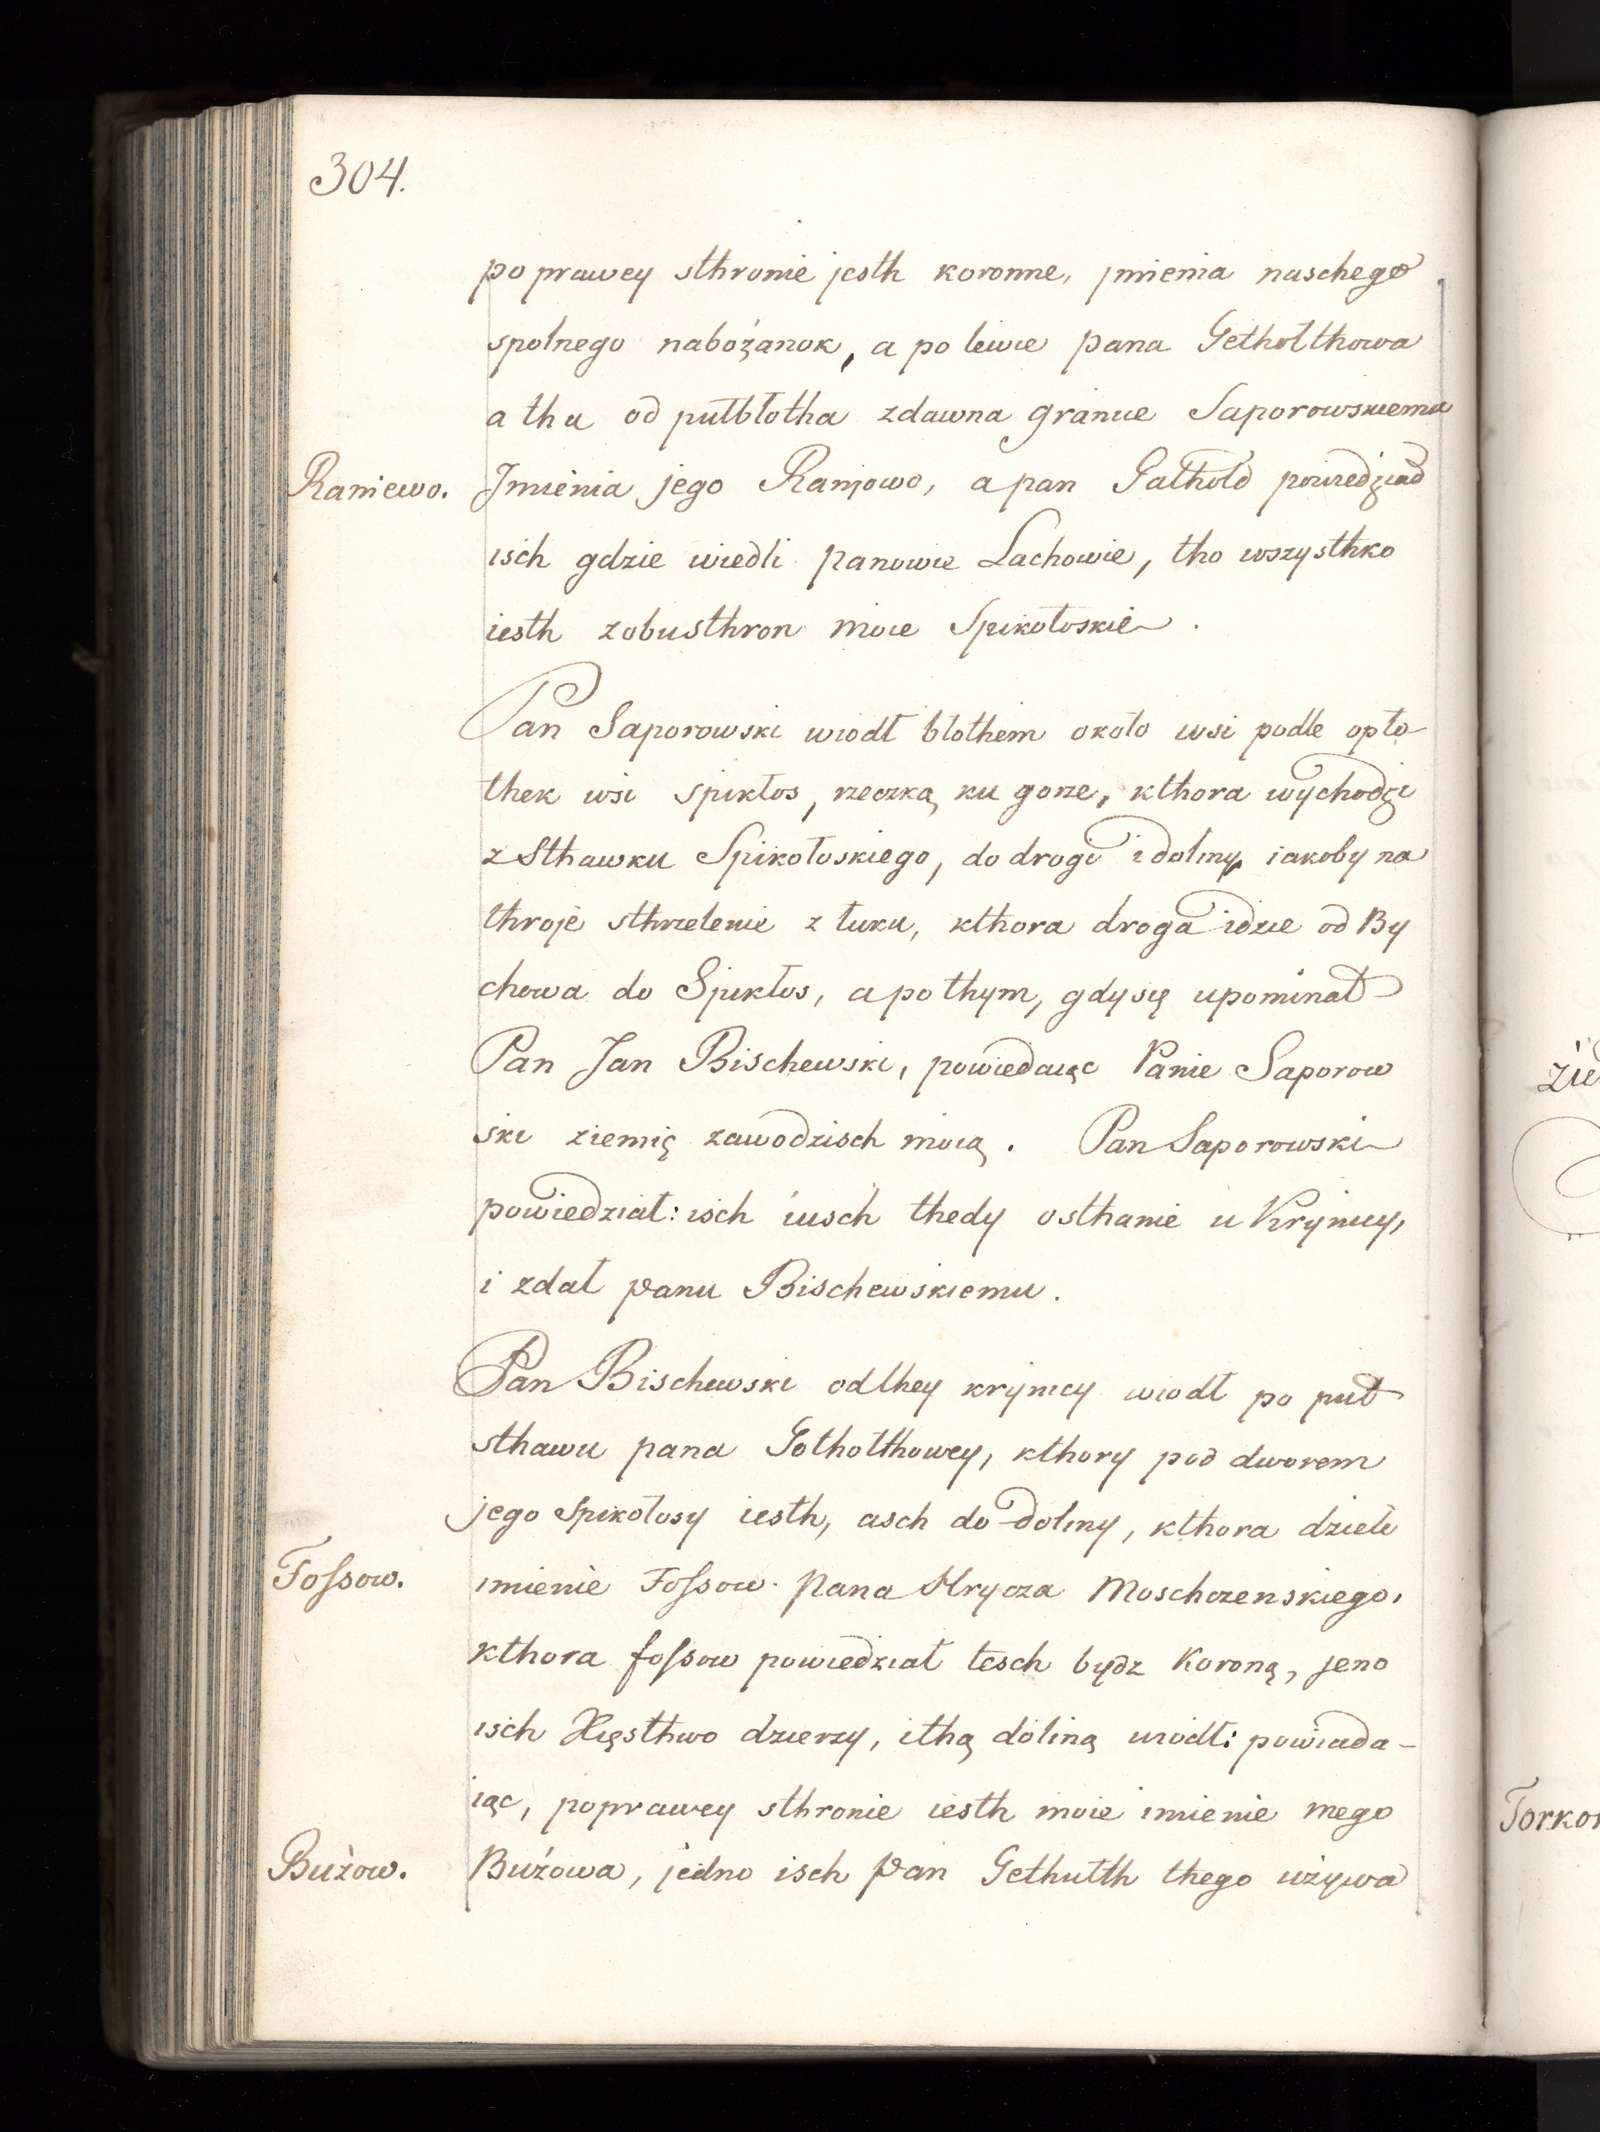 304.
po prawey sthronie jesth koronne, jmienia naschego
spolnego nabożanok, a po lewie pana Getholthowa
a thu od pułbłotha zdawna granice Saporowskiemu
Raniewo. Jmienia jego Ranjowo, a pan Gathold powiedział
isch gdzie wiedli panowie Lachowie, tho wszysthko
iesth zobusthron moie Spikołoskie.
Pan Saporowski wiodł błothem około wsi podle opło-
thek wsi Spikłos, rzeczką ku gorze, kthora wychodzi
z Sthawku Spikołoskiego, do drogi i doliny, iakoby na
throje sthrzelenie z łuku, kthora droga idzie od By
chowa do Spikłos, a po thym, gdy się upominał
Pan Jan Bischewski, powiedaiąc Panie Saporow
ski ziemię zawodzisch moią. Pan Saporowski
powiedział: isch iusch thedy osthanie u Krynicy,
i zdał panu Bischewskiemu.
Pan Bischewski od they krynicy wiodł po puł
sthawu pana Gotholthowey, kthory pod dworem
jego Spikołosy iesth, asch do doliny, kthora dzieli
Fossow. imienie Fossow. pana Hrycza Moschczenskiego,
kthora fossow powiedział tesch bydz Koroną, jeno
isch Xięsthwo dzierzy, i thą doliną wiodł: powiada-
iąc, po prawey sthronie iesth moie imienie mego
Bużow. Bużowa, jedno isch pan Gethulth thego używa
Torkor